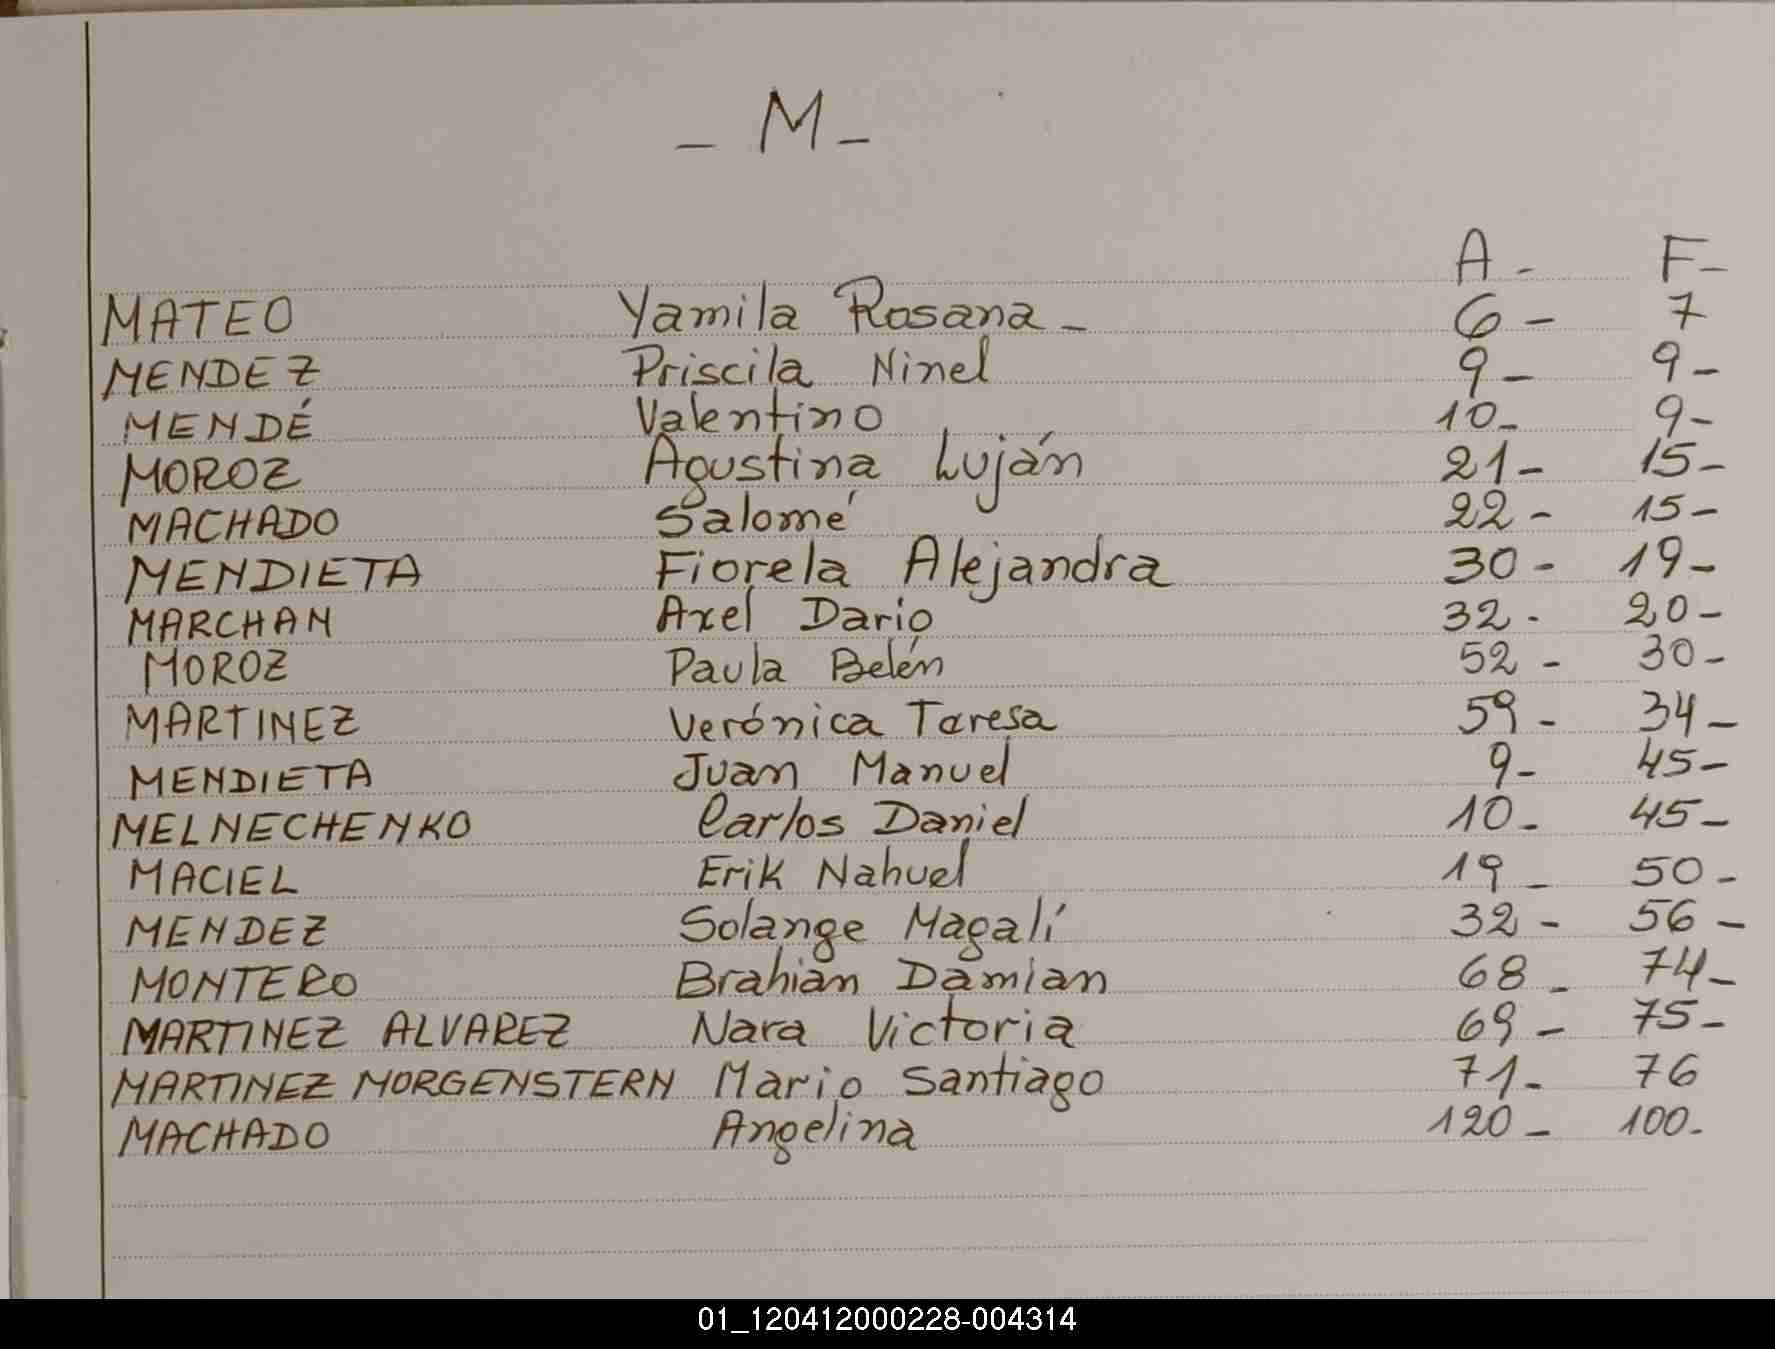 - M -
A - F-
MATEO Yamila Rosana - 6 - 7
MENDEZ Priscila Ninel 9 - 9 -
MENDÉ Valentino 10- 9-
MOROZ Agustina Luján 21- 15-
MACHADO Salomé 22 - 15 -
MENDIETA Fiorela Alejandra 30 - 19 -
MARCHAN Axel Dario 32 - 20 -
MOROZ Paula Belén 52 - 30 -
MARTINEZ Verónica Teresa 59 - 34 -
MENDIETA Juan Manuel 9- 45-
MELNECHENKO Carlos Daniel 10- 45-
MACIEL Erik Nahuel 19 - 50 -
MENDEZ Solange Magalí 32 - 56 -
MONTERO Brahian Damian 68 - 74-
MARTINEZ ALVAREZ Nara Victoria 69 - 75-
MARTINEZ MORGENSTERN Mario Santiago 71- 76
MACHADO Angelina 120 - 100-
01_120412000228-004314